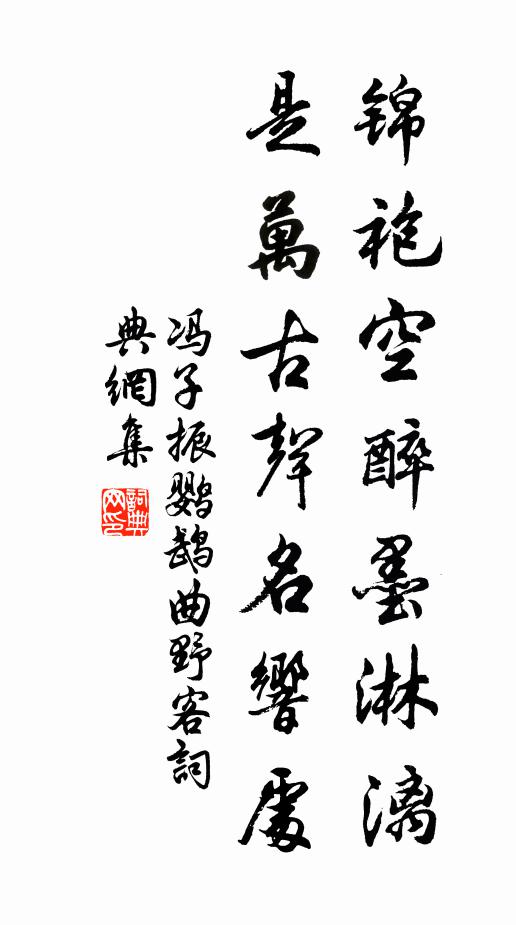 锦袍空醉墨淋漓
是萬古聲名響處
冯子振鹦鹉曲野客詞
典網集
詞典
网印